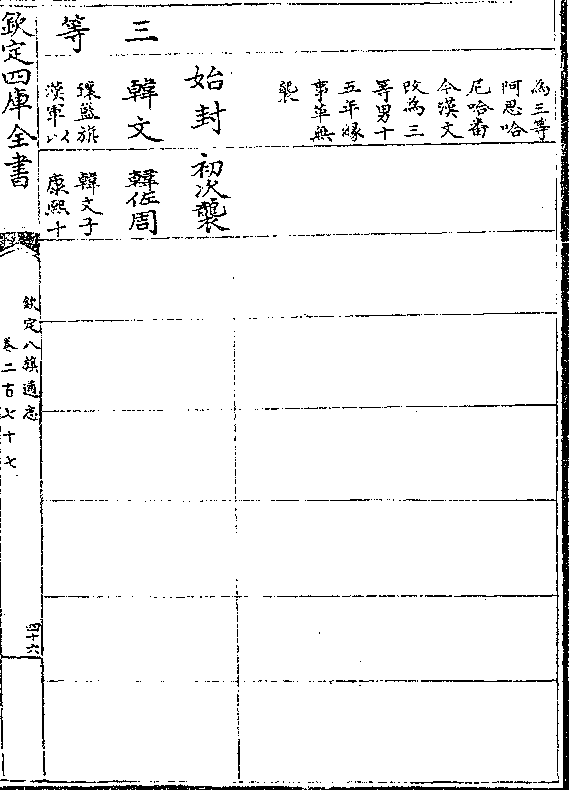 為三等
阿思哈
尼哈番
今漢文
改為三
等男十
五年緣
事革無
襲
始封
初次襲
三
韓文
韓佐周
等
藍旗
漢軍以
韓文子
康熙十
欽定四庫全書
欽定八旗通志
卷二百七十七
四十六